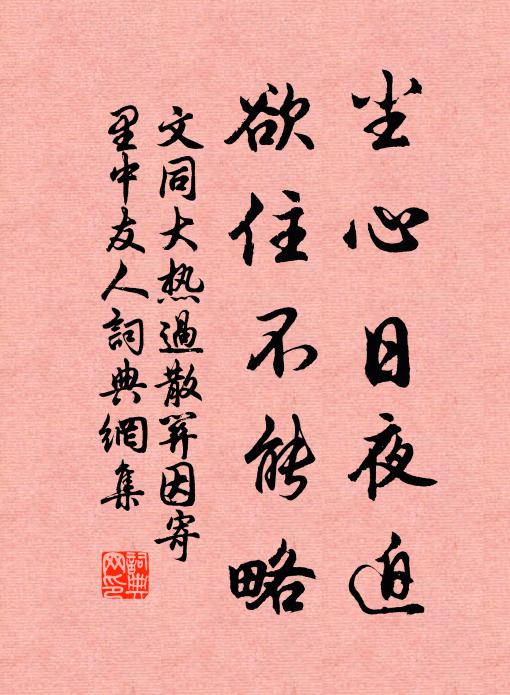 尘心日夜迫
欲住不能略
文同大热過散関因寄
里中友人詞典網集
詞典
网印